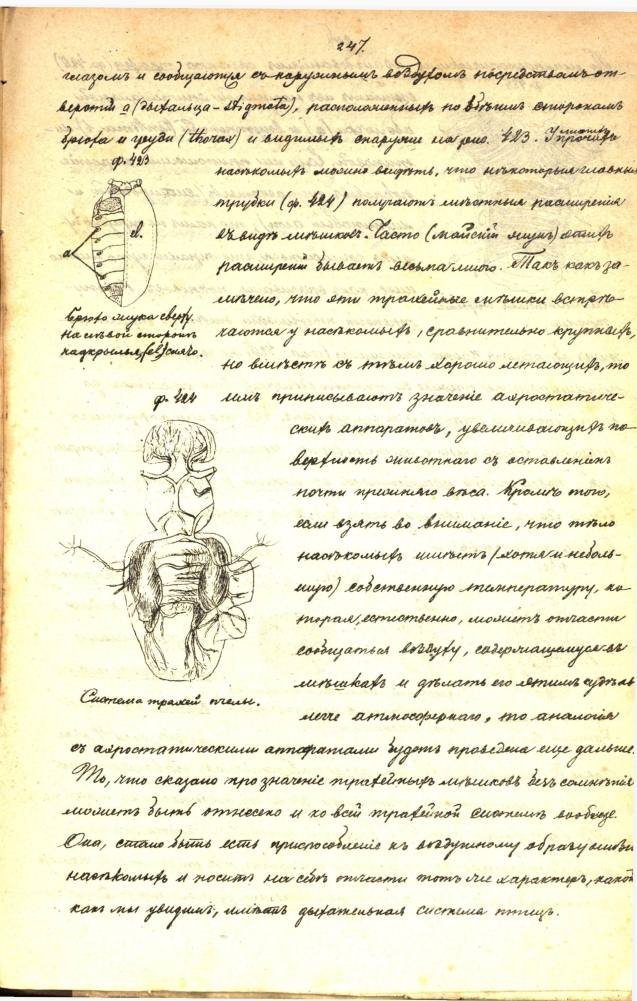 247.
глазомъ и сообщаются съ наружнымъ воздухомъ посредствомъ от-
верстій a (дыхальца - stigmata), расположенныхъ по обѣимъ сторонамъ
брюха и груди (thorax) и видимыхъ снаружи на рис. 423. У многихъ
ф. 423
насѣкомыхъ можно видѣть, что нѣкоторыя главныя
трубки (ф. 424) получаютъ мѣстныя расширенія
въ видѣ мѣшковъ. Часто (майскій жукъ) этихъ
расширеній бываетъ весьма много. Такъ какъ за-
мѣчено, что эти трахейные мѣшки встрѣ-
чаются у насѣкомыхъ, сравнительно крупныхъ,
но вмѣстѣ съ тѣмъ хорошо летающихъ, то
имъ приписываютъ значеніе аэростатиче-
скихъ аппаратовъ, увеличивающихъ по-
верхность животнаго съ оставленіемъ
почти прежняго вѣса. Кромѣ того,
если взять во вниманіе, что тѣло
насѣкомыхъ имѣетъ (хотя и неболь-
шую) собственную температуру, ко-
торая, естественно, можетъ отчасти
сообщаться воздуху, содержащемуся въ
мѣшкахъ и дѣлать его этимъ
легче атмосфернаго, то аналогія
a
el.
Брюхо жука сверху.
На лѣвой сторонѣ
надкрылье (el) снято.
ф. 424
Система трахей пчелы.
съ аэростатическими аппаратами будетъ проведена еще дальше.
То, что сказано про значеніе трахейныхъ мѣшковъ безъ сомнѣнія
можетъ быть отнесено и ко всей трахейной системѣ вообще.
Она, стало быть есть приспособленіе къ воздушному образу жизни
насѣкомыхъ и носитъ на себѣ отчасти тотъ же характеръ, какой
какъ мы увидимъ, имѣетъ дыхательная система птицъ.